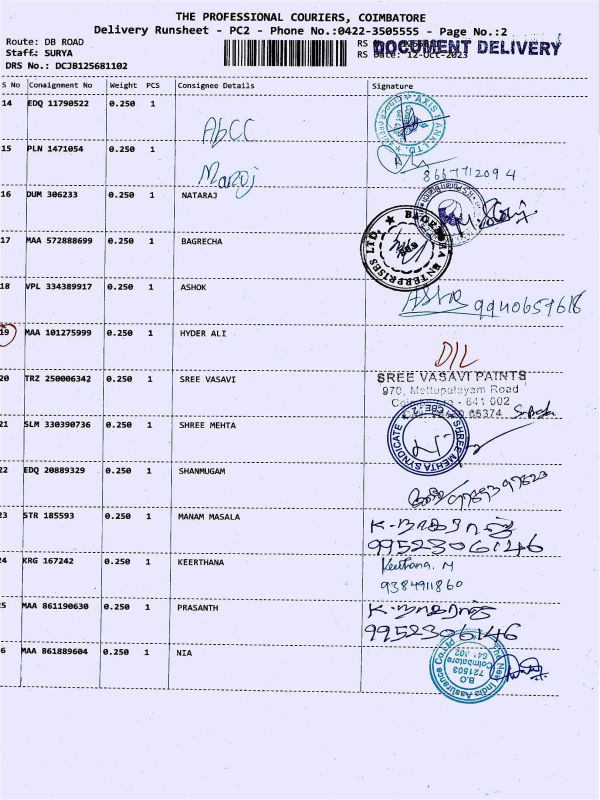 THE PROFESSIONAL COURIERS, COIMBATORE
Delivery Runsheet - PC2 - Phone No.:0422-3505555 - Page No.:2
Route: DB ROAD
DOCUMENT DELIVERY
Staff: SURYA
RS Date: 12-Oct-2023
DRS No.: DCJB125681102
S No Consignment No Weight PCS Consignee Details Signature
14 EDQ 11790522 0.250 1
AXIS BANK LTD.
15 PLN 1471054 0.250 1 Manoj
8667712094
16 DUM 306233 0.250 1 NATARAJ
17 MAA 572888699 0.250 1 BAGRECHA
BAGRECHA ENTERPRISES LTD.
18 VPL 334389917 0.250 1 ASHOK
9940657618
19 MAA 101275999 0.250 1 HYDER ALI
D/L
20 TRZ 250006342 0.250 1 SREE VASAVI
SREE VASAVI PAINTS
970, Mettupalayam Road
641 002
21 SLM 330390736 0.250 1 SHREE MEHTA
SHREE MEHTA SYNDICATE
22 EDQ 20889329 0.250 1 SHANMUGAM
23 STR 185593 0.250 1 MANAM MASALA
9952306146
24 KRG 167242 0.250 1 KEERTHANA
Keerthana. M
9384911860
25 MAA 861190630 0.250 1 PRASANTH
9952306146
6 MAA 861889604 0.250 1 NIA
The New India Assurance Co.
B.O
721503
Coimbatore